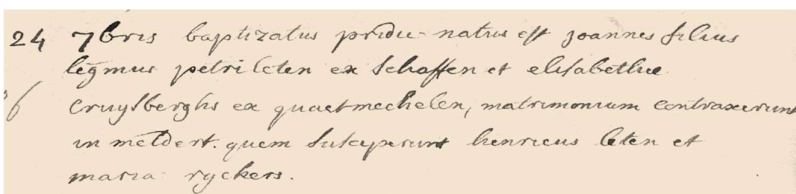 24 7bris baptizatus pridie natus est joannes filius
legmus petri leten ex schaffen et elisabethae
6 cruysberghs ex quaetmechelen, matrimonium contraxerunt
in meldert. quem susceperunt henricus leten et
maria ryckers.